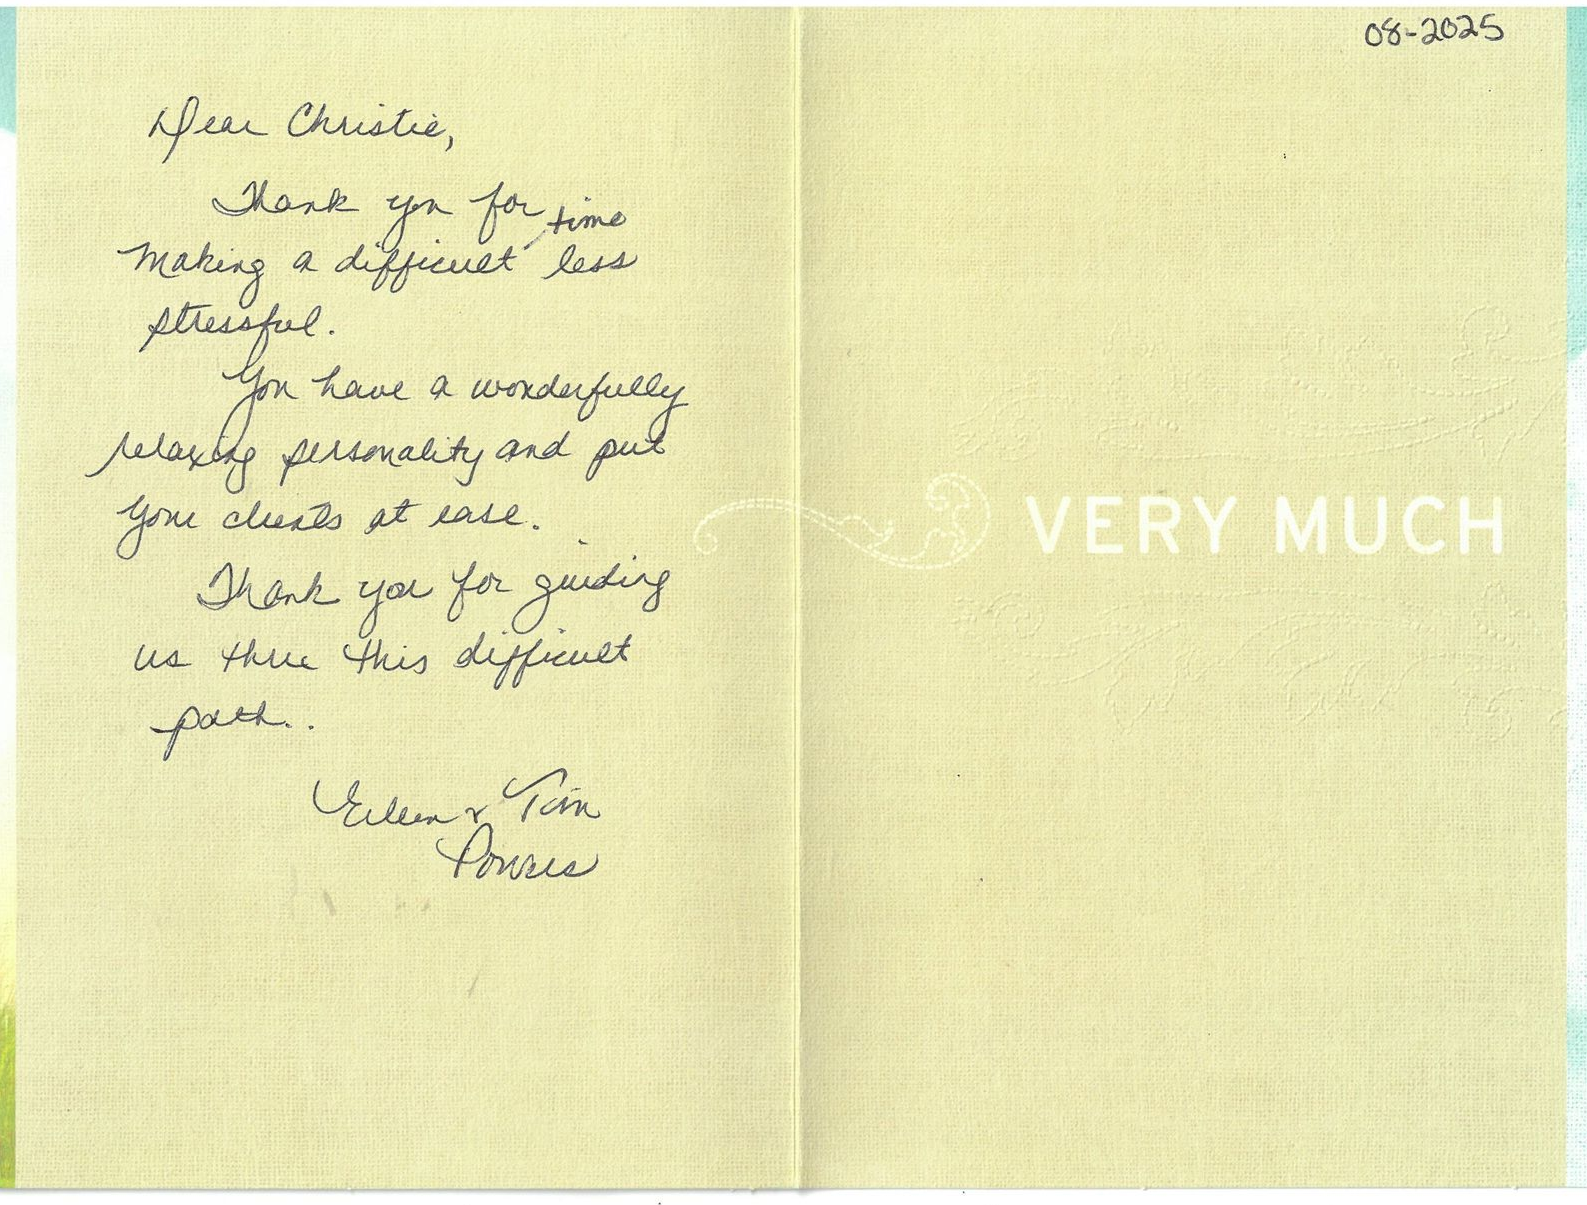 08-2025
Dear Christie,
Thank you for
making a difficult time less
stressful.
You have a wonderfully
relaxing personality and put
your clients at ease.
Thank you for guiding
us thru this difficult
path..
Eileen & Tim
Powers
VERY MUCH